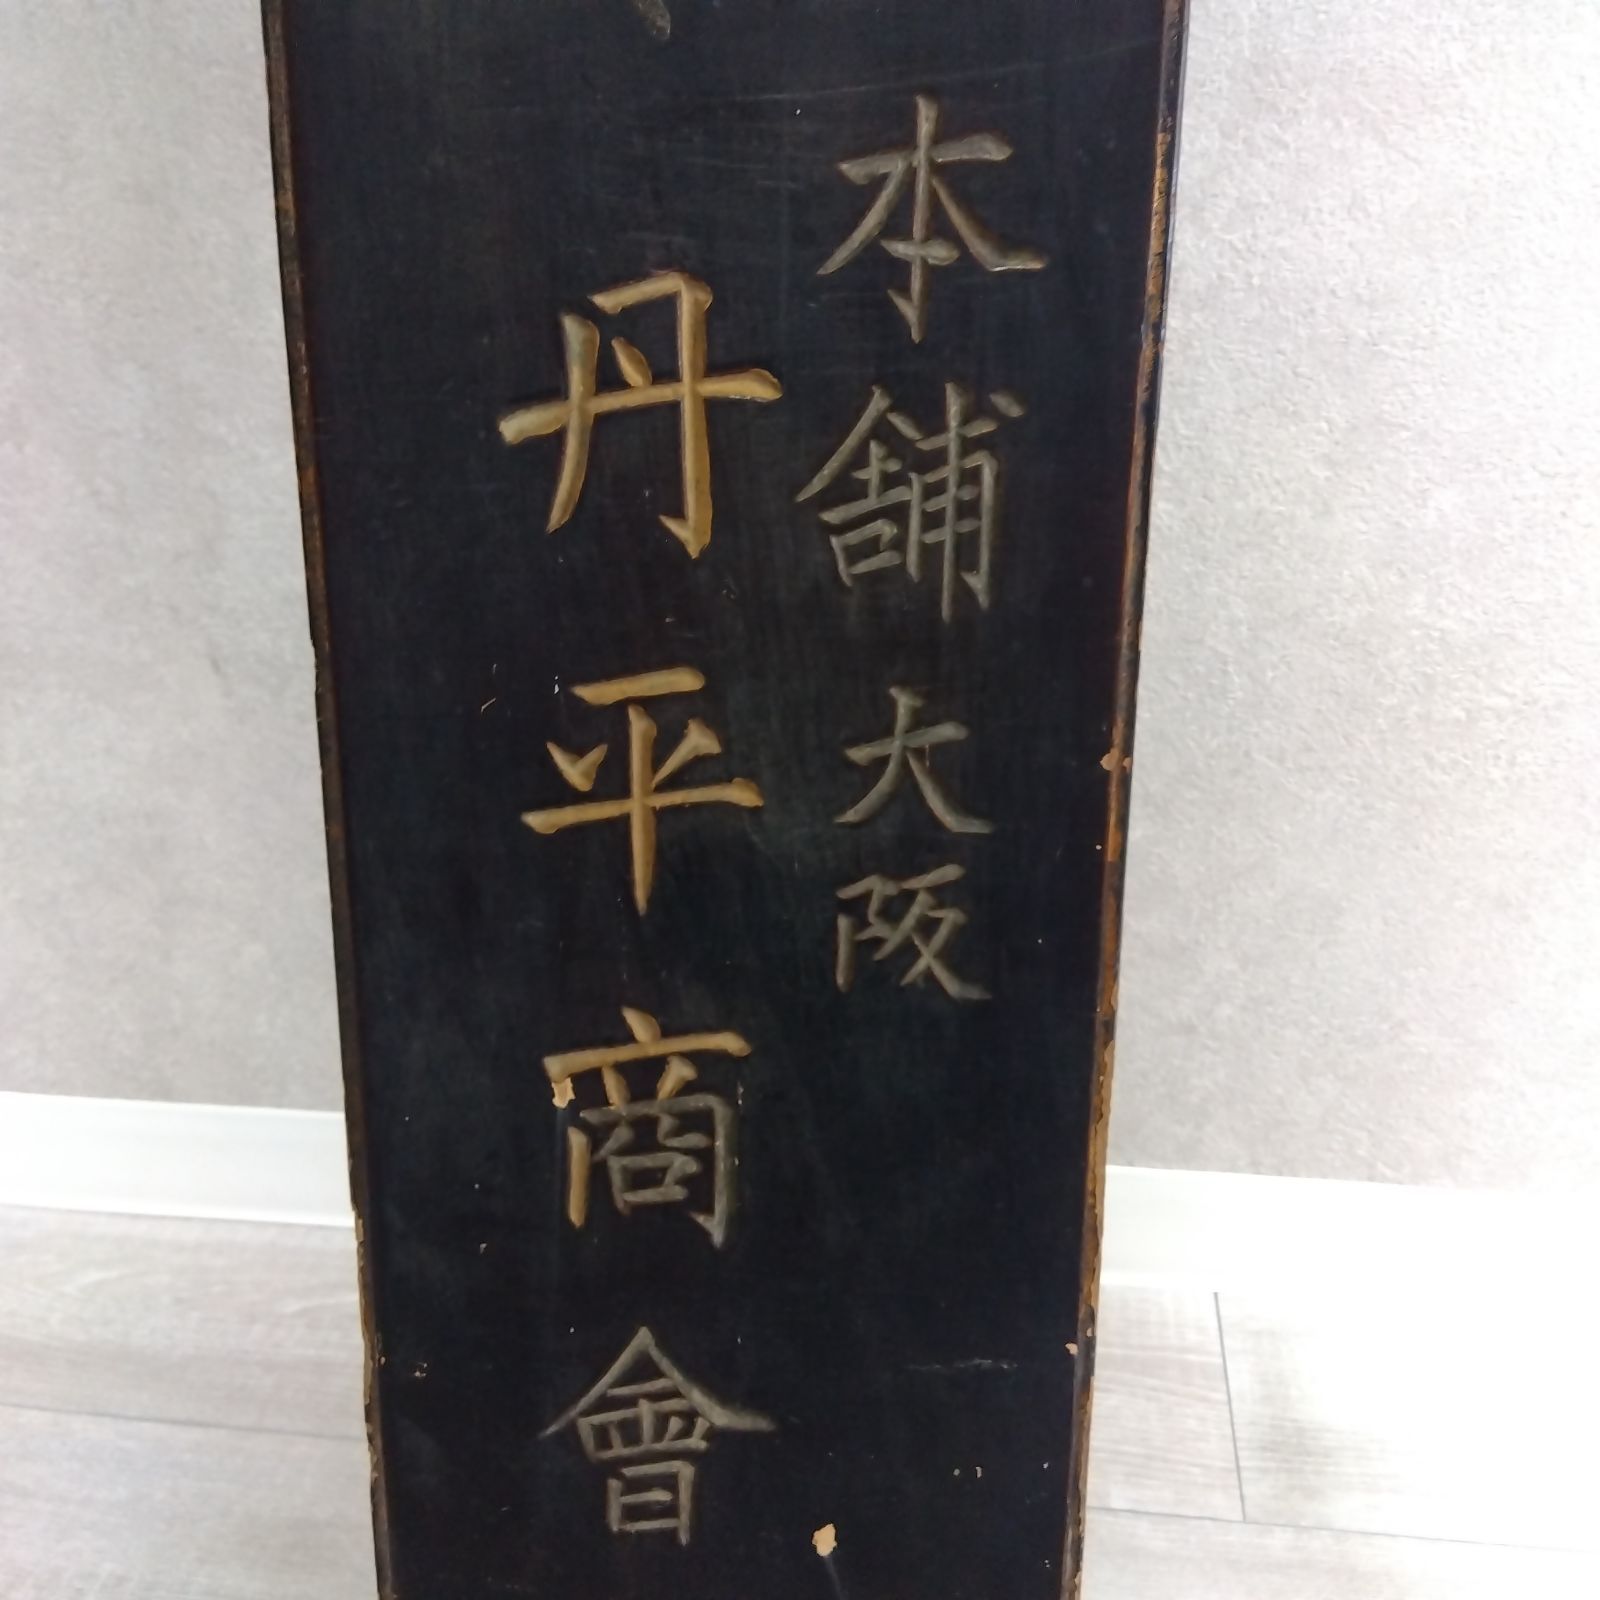 本舗大阪
丹平商會